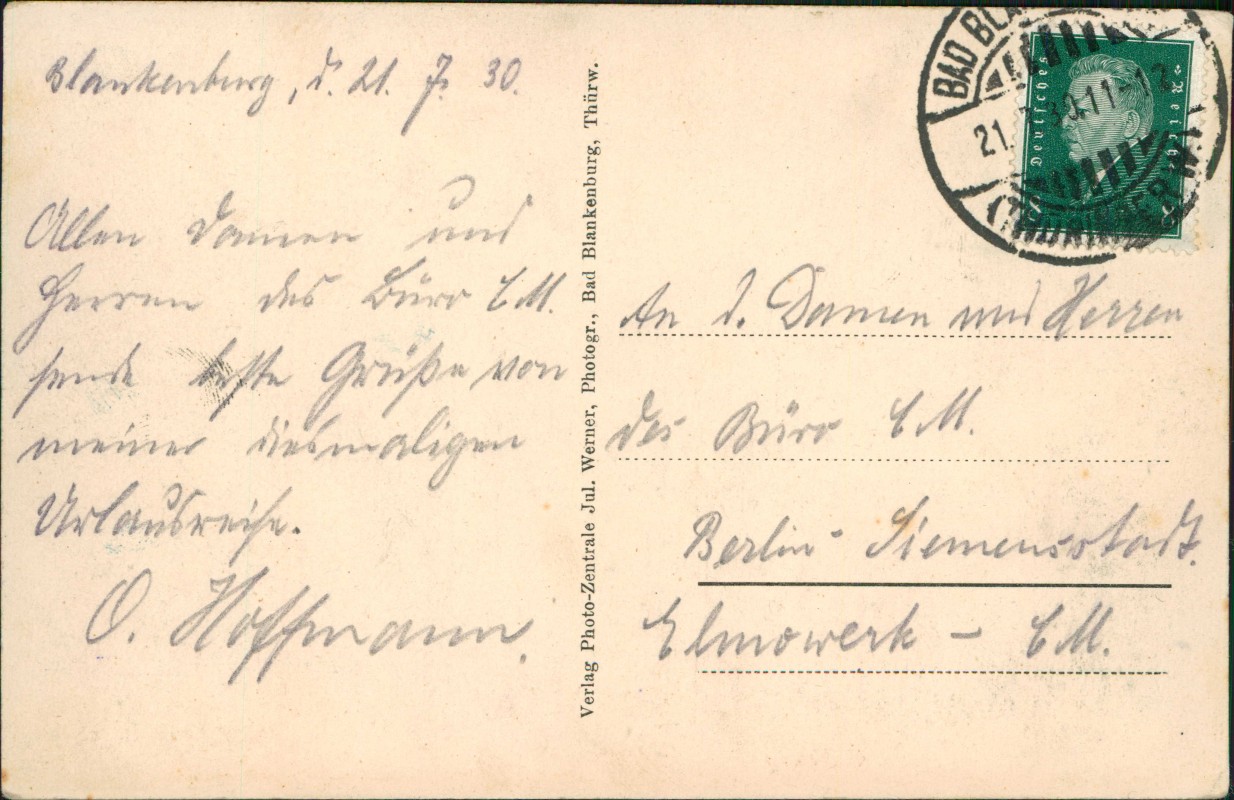 Blankenburg, d. 21. 7. 30.
Allen Damen und
Herren des Büro E.M.
sende beste Grüße von
meiner diesmaligen
Urlausreise.
O. Hoffmann.
Verlag Photo-Zentrale Jul. Werner, Photogr., Bad Blankenburg, Thürw.
BAD BLA
21. 7. 30. 11-12
(THÜRINGER W.)
Deutsches Reich
An d. Damen und Herren
des Büro E.M.
Berlin-Siemensstadt.
Elmowerk - E.M.